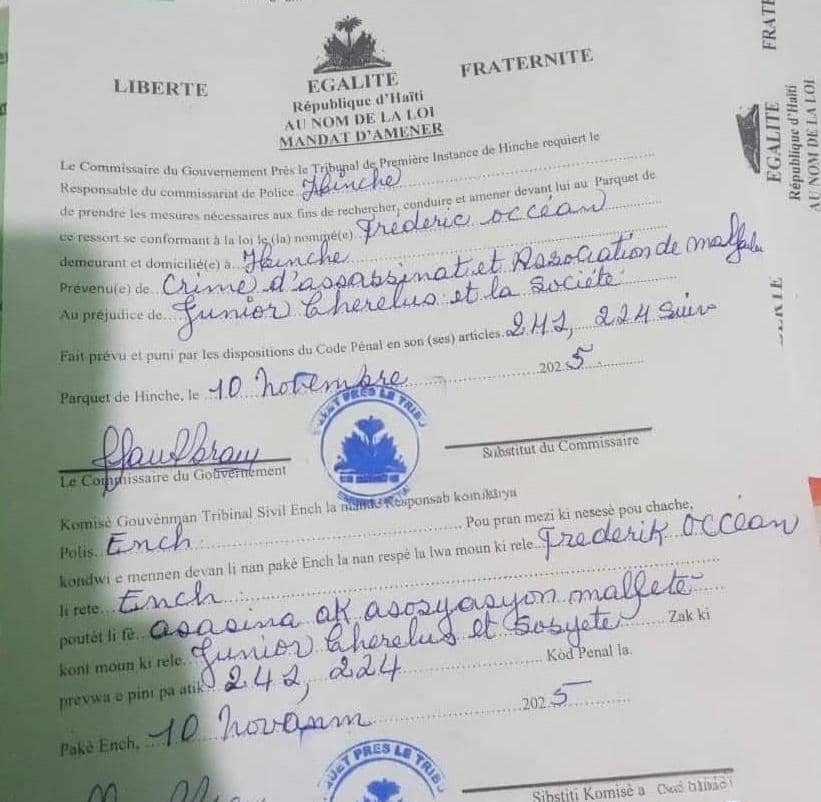 LIBERTE
EGALITE
FRATERNITE
République d'Haïti
AU NOM DE LA LOI
MANDAT D'AMENER
Le Commissaire du Gouvernement Près le Tribunal de Première Instance de Hinche requiert le
Responsable du commissariat de Police Hinche
de prendre les mesures nécessaires aux fins de rechercher, conduire et amener devant lui au Parquet de
ce ressort se conformant à la loi le (la) nommé(e) Frederic occéan
demeurant et domicilié(e) à Hinche
Prévenu(e) de Crime d'assassinat et Association de malfai
Au préjudice de Junior Cherelus et la Société
Fait prévu et puni par les dispositions du Code Pénal en son (ses) articles 242, 224 Suiv
Parquet de Hinche, le 10 novembre 2025
Le Commissaire du Gouvernement
Substitut du Commissaire
PRES LE TRIBU
Komisè Gouvènman Tribinal Sivil Ench la mande Responsab komikarya
Polis Ench Pou pran mezi ki nesesè pou chache,
kondwi e mennen devan li nan pakè Ench la nan respè la lwa moun ki rele Frederik occéan
li rete Ench
poutèt li fè asasina ak asosyasyon malfetè
kont moun ki rele Junior Cherelus et Sosyete Zak ki
prevwa e pini pa atik 242, 224 Kòd Penal la.
Pakè Ench, 10 Novanm 2025
QUET PRES LE TRIBU
Sibstiti Komisè a
FRATE
EGALITE
République d'Haïti
AU NOM DE LA LOI